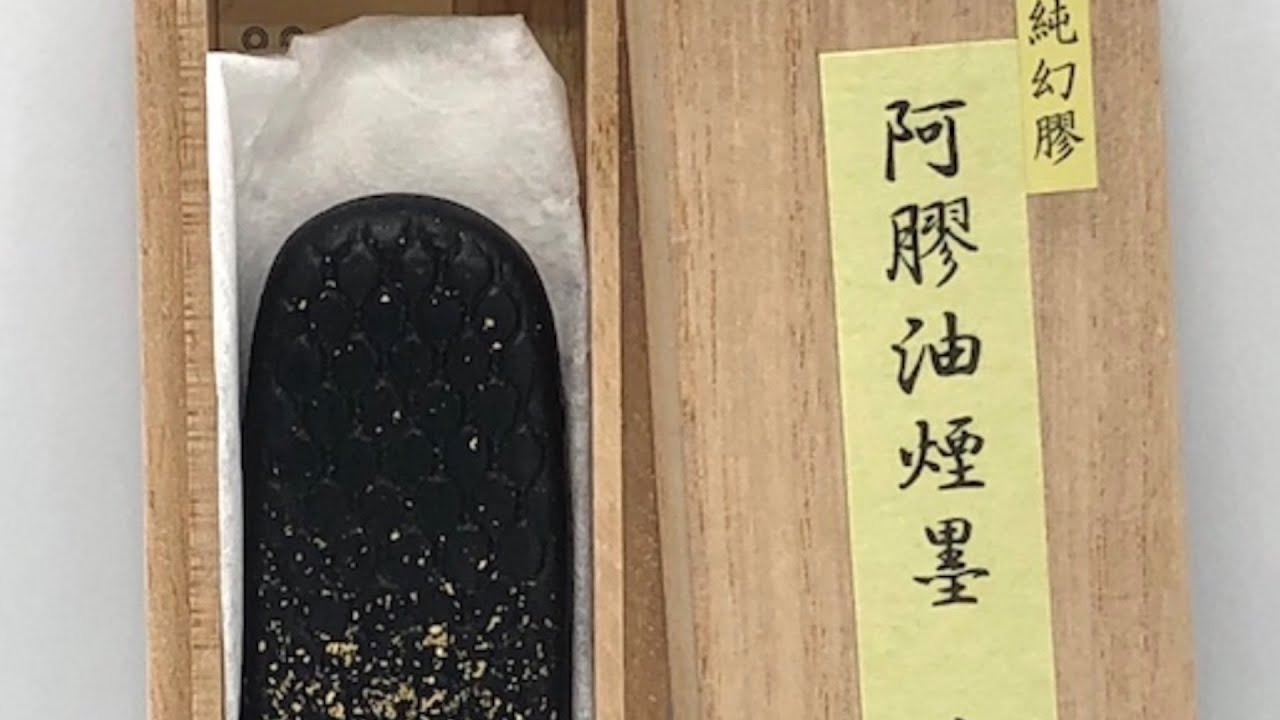 純幻膠
阿膠油煙墨